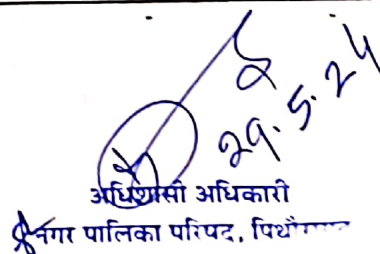 29.5.24
अधिशासी अधिकारी
नगर पालिका परिषद,